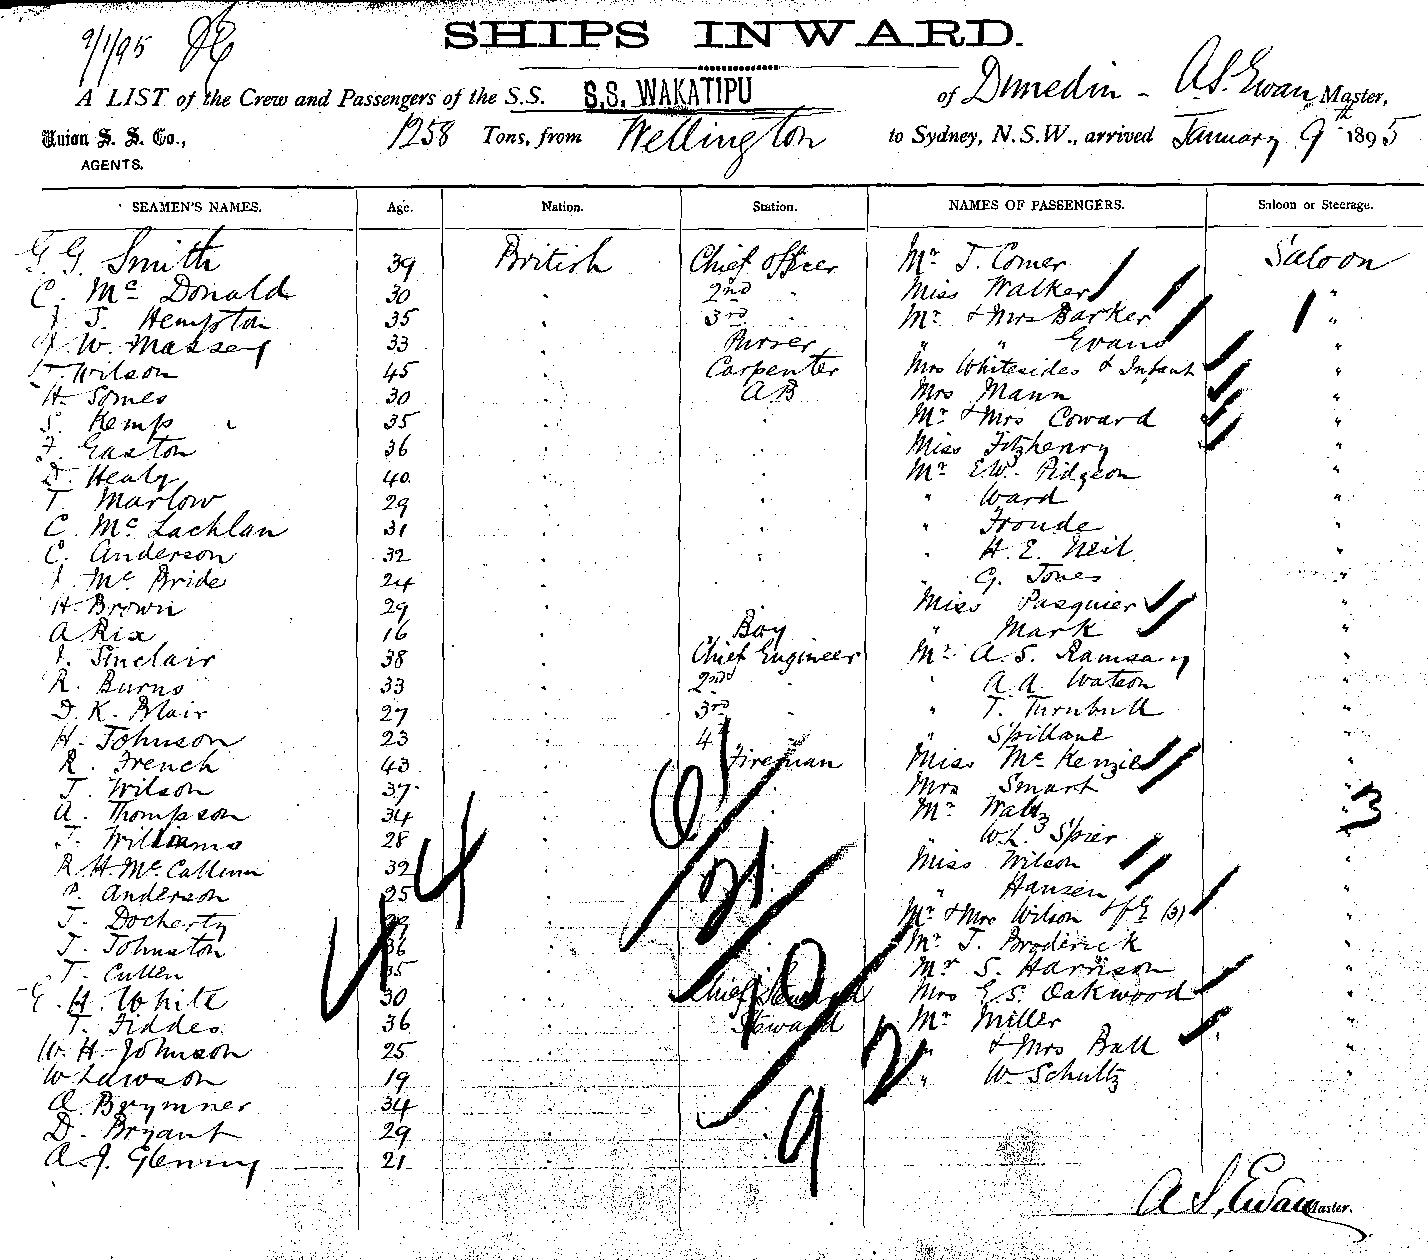 9/1/95
SHIPS INWARD.
A LIST of the Crew and Passengers of the S.S. S.S. WAKATIPU of Dunedin - A.S. Ewan Master,
Union S. S. Co., AGENTS. 1258 Tons, from Wellington to Sydney, N.S.W., arrived January 9th 1895
SEAMEN'S NAMES. Age. Nation. Station. NAMES OF PASSENGERS. Saloon or Steerage.
G. G. Smith 39 British Chief Officer Mr J. Comer Saloon
C. Mc Donald 30 " 2nd " Miss Walker "
J. J. Hempton 35 " 3rd " Mr & Mrs Barker 1 "
J. W. Massey 33 " Purser " " Evans "
Wilson 45 " Carpenter Mrs Whitesides & Infant "
H. Somes 30 " AB Mrs Mann "
S. Kemp 35 " " Mr & Mrs Coward "
F. Easton 36 " " Miss Fitzhenry "
D. Healy 40 " " Mr E.W. Pidgeon "
T. Marlow 29 " " " Ward "
C. Mc Lachlan 31 " " " Froude "
C. Anderson 32 " " " H. E. Neil "
J. Mc Bride 24 " " " G. Jones "
H. Brown 29 " " Miss Pasquier "
A Rix 16 " Boy " Mark "
J. Sinclair 38 " Chief Engineer Mr A. S. Ramsay "
R. Burns 33 " 2nd " " A. A. Watson "
D. K. Blair 27 " 3rd " " T. Turnbull "
H. Johnson 23 " 4 " " Spillane "
R. French 43 " Fireman Miss Mc Kenzie "
J. Wilson 37 " " Mrs Smart "
A. Thompson 34 " " Mr Waltz " 3
J. Williams 28 " " " W.L. Spier "
R H. Mc Callum 32 " " Miss Wilson "
P. Anderson 25 " " " Hansen "
J. Docherty " " Mr & Mrs Wilson (3) "
J. Johnston 36 " " Mr J. Broderick "
T. Cullen 35 " " Mr S. Harrison "
E. H. White 30 " Chief Steward Mrs E. S. Oakwood "
T. Fiddes 36 " Steward Mr Miller "
W. H. Johnson 25 " " " & Mrs Ball "
W Lawson 19 " " " W. Schultz "
A. Brymner 34 " "
D. Bryant 29 " "
A. J. Gleming 21 " "
44
61
31
10
2
9
A. S. Ewan Master.